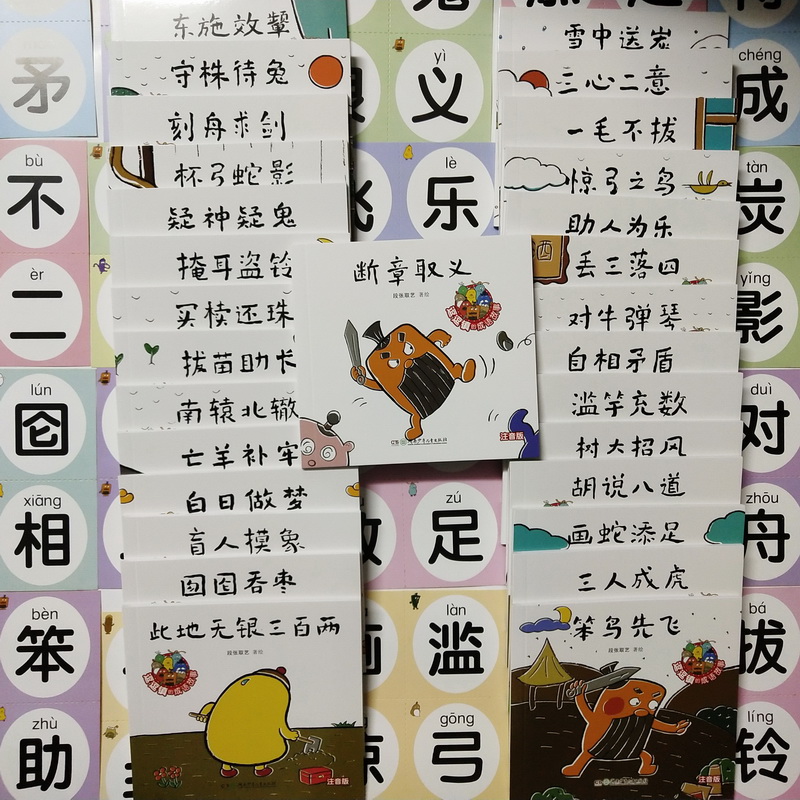 矛
bù
不
èr
二
lún
囵
xiāng
相
bèn
笨
zhù
助
东施效颦
守株待兔
刻舟求剑
杯弓蛇影
疑神疑鬼
掩耳盗铃
买椟还珠
拔苗助长
南辕北辙
亡羊补牢
白日做梦
盲人摸象
囫囵吞枣
此地无银三百两
段张取艺 著绘
注音版
yì
义
lè
乐
断章取义
段张取艺 著绘
注音版
zú
足
làn
滥
gōng
弓
雪中送炭
三心二意
一毛不拔
惊弓之鸟
助人为乐
丢三落四
对牛弹琴
自相矛盾
滥竽充数
树大招风
胡说八道
画蛇添足
三人成虎
笨鸟先飞
段张取艺 著绘
注音版
chéng
成
tàn
炭
yǐng
影
duì
对
zhōu
舟
bá
拔
líng
铃